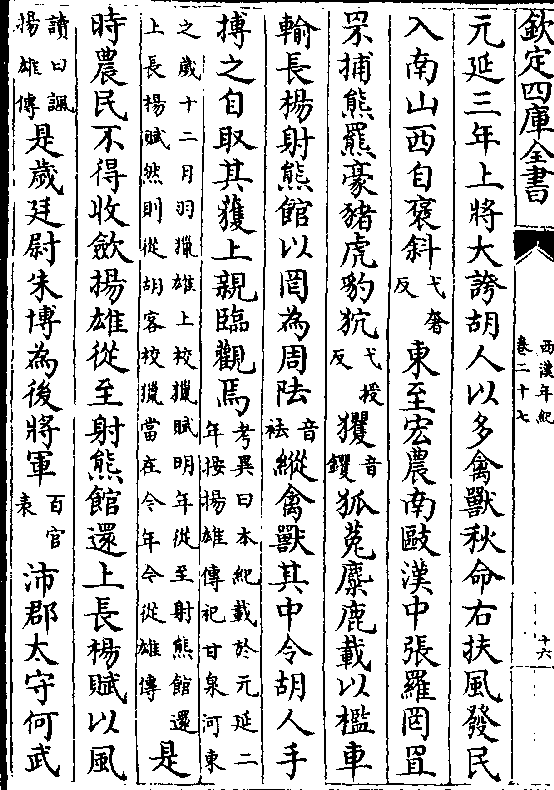 欽定四庫全書
西漢年紀
卷二十七
十六
元延三年上將大誇胡人以多禽獸秋命右扶風發民
入南山西自褒斜弋奢反東至宏農南敺漢中張羅罔罝
罘捕熊羆豪豬虎豹狖弋授反玃音钁狐菟麋鹿載以檻車
輸長楊射熊館以罔為周阹音祛縱禽獸其中令胡人手
搏之自取其獲上親臨觀焉考異曰本紀載於元延二年按揚雄傳祀甘泉河東
之歲十二月羽獵雄上校獵賦明年從至射熊館還上長楊賦然則從胡客校獵當在今年今從雄傳是
時農民不得收斂揚雄從至射熊館還上長楊賦以風
讀曰諷揚雄傳是歲廷尉朱博為後將軍百官表沛郡太守何武